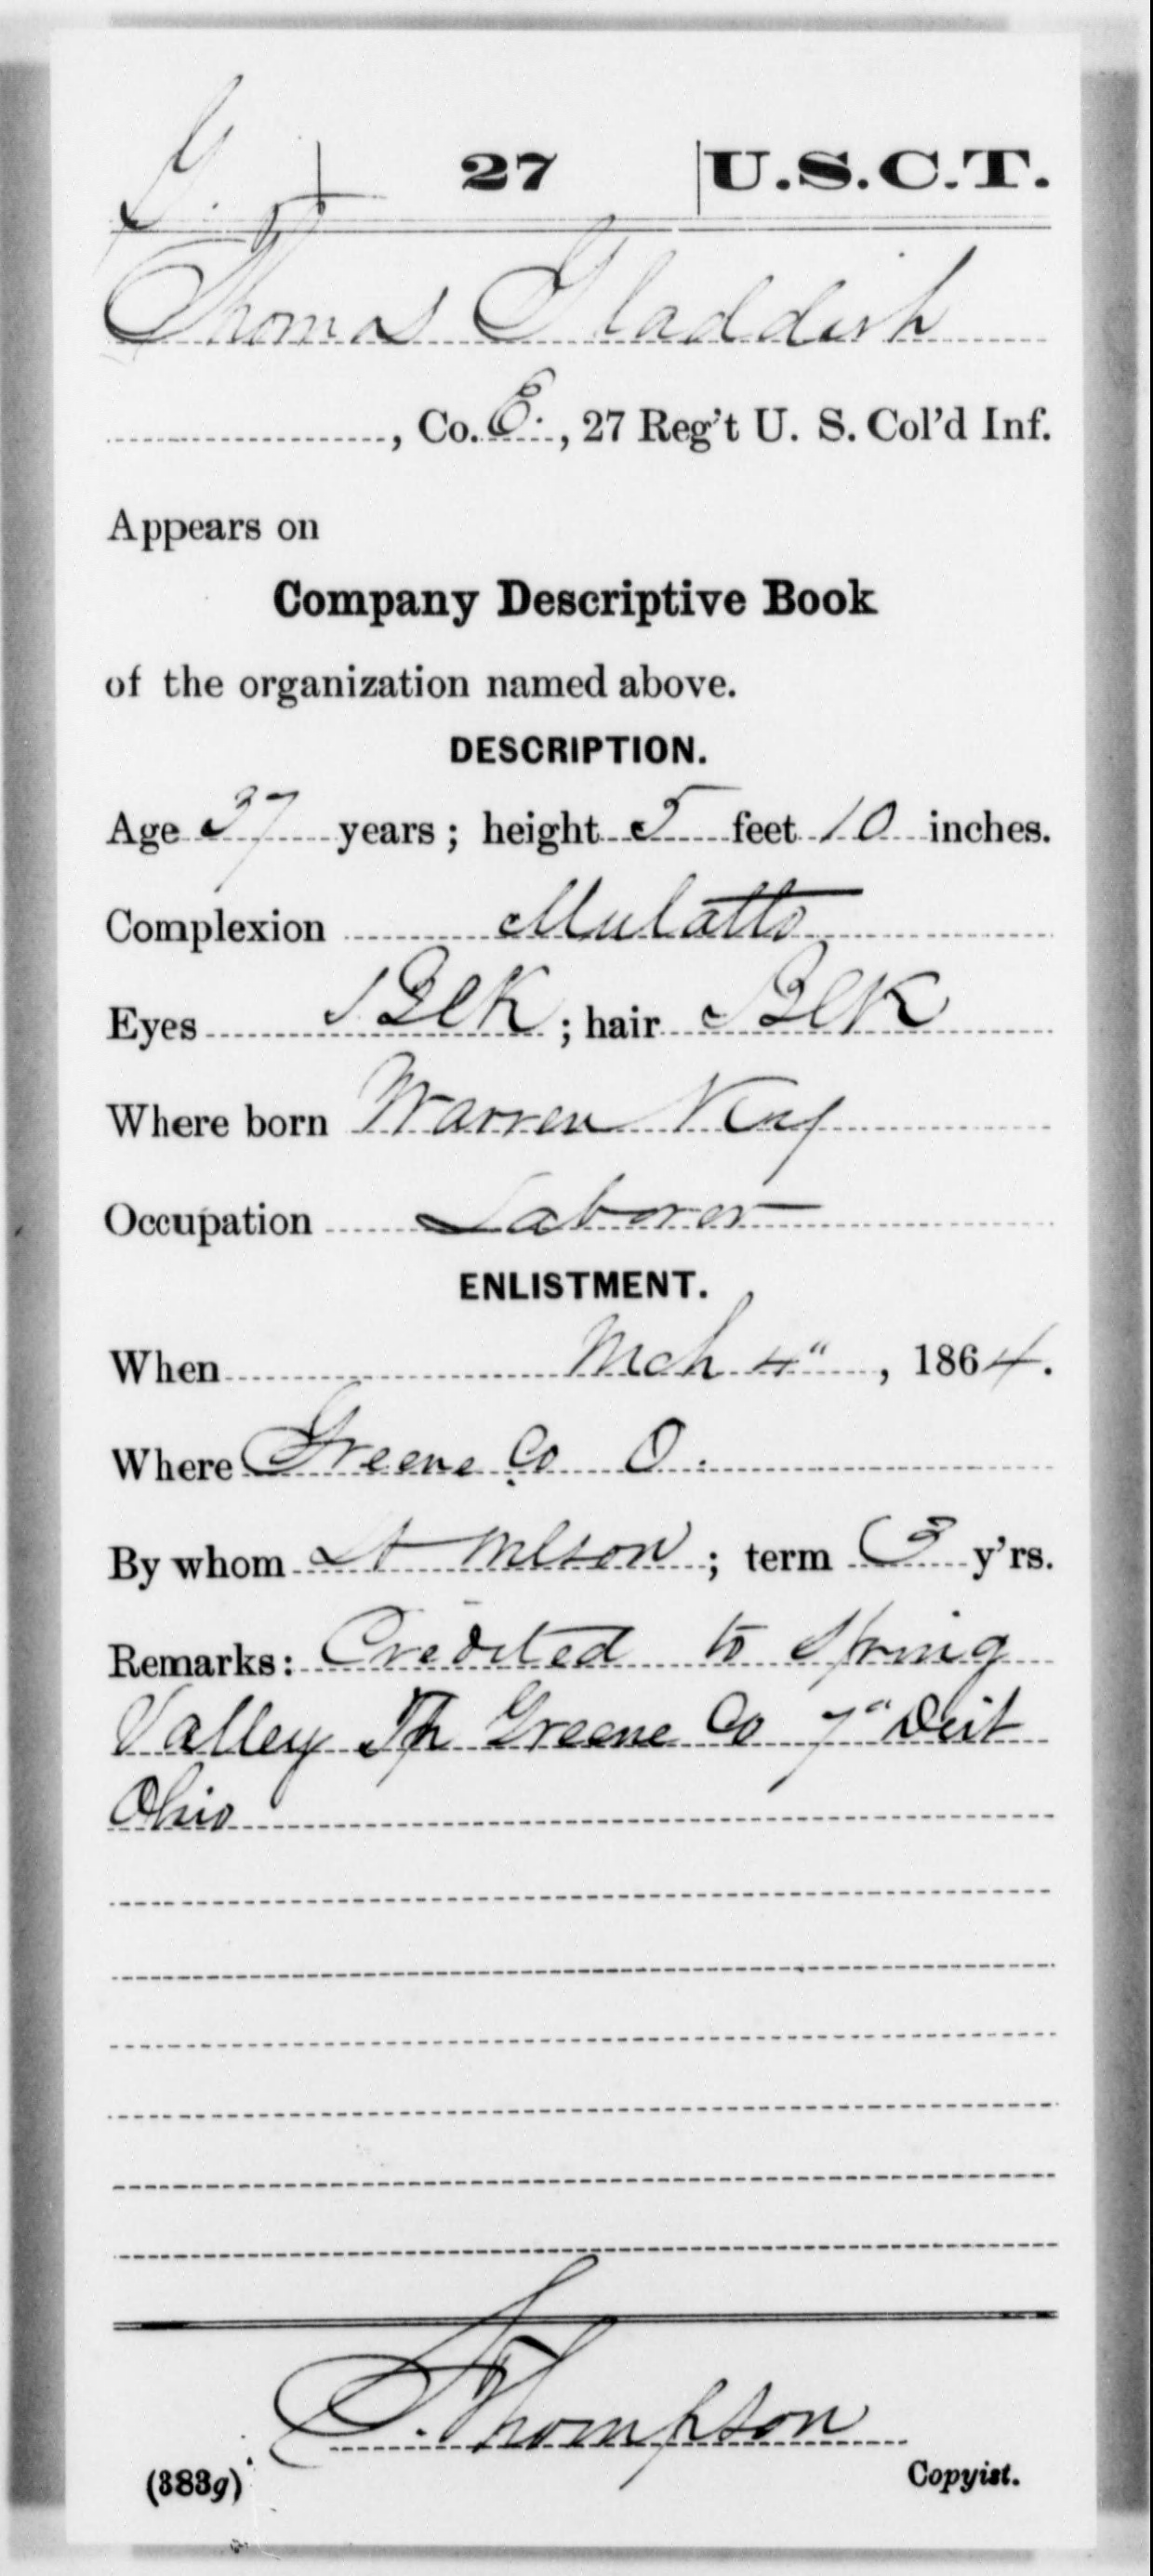 G. | 27 | U.S.C.T.
Thomas Gladdish
, Co. E., 27 Reg't U. S. Col'd Inf.
Appears on
Company Descriptive Book
of the organization named above.
DESCRIPTION.
Age 37 years; height 5 feet 10 inches.
Complexion Mulatto
Eyes Blk; hair Blk
Where born Warren Key
Occupation Laborer
ENLISTMENT.
When Mch 4", 1864.
Where Greene Co O.
By whom Lt ; term 3 y'rs.
Remarks: Credited to Spring
Valley Tp Greene Co 7" Dist
Ohio
Thompson
(383g) Copyist.